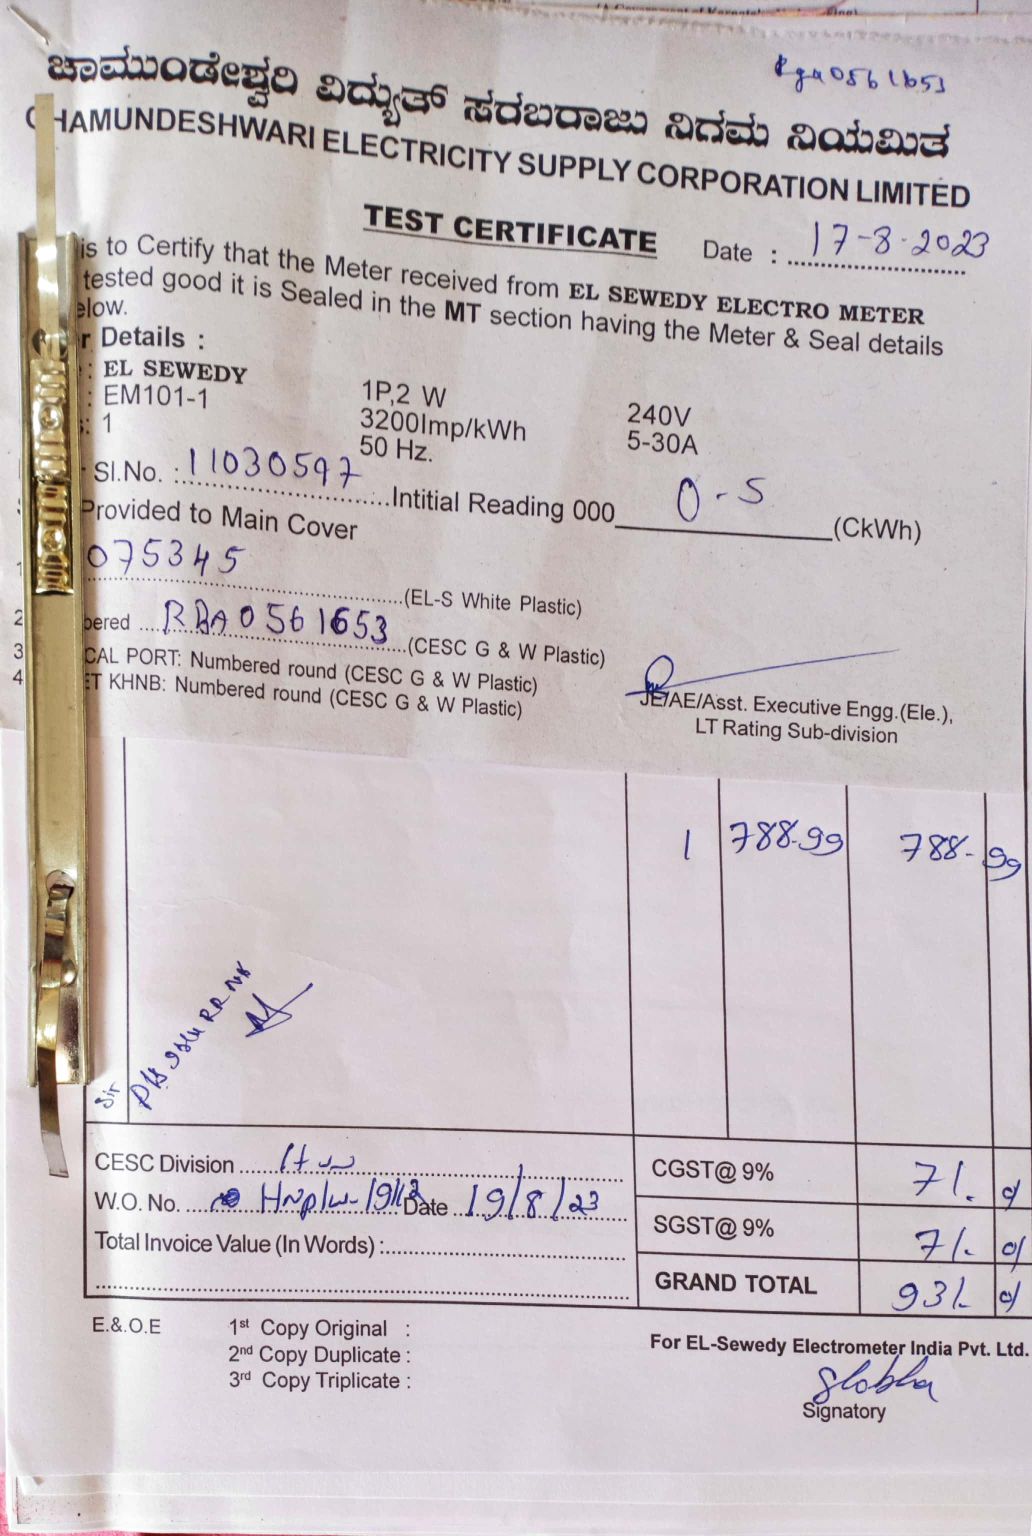 RBA0561653
ಚಾಮುಂಡೇಶ್ವರಿ ವಿದ್ಯುತ್ ಸರಬರಾಜು ನಿಗಮ ನಿಯಮಿತ
CHAMUNDESHWARI ELECTRICITY SUPPLY CORPORATION LIMITED
TEST CERTIFICATE Date : 17-8-2023
is to Certify that the Meter received from EL SEWEDY ELECTRO METER
tested good it is Sealed in the MT section having the Meter & Seal details
elow.
r Details :
: EL SEWEDY 1P,2 W 240V
: EM101-1 3200Imp/kWh 5-30A
: 1 50 Hz.
Sl.No. : 11030597 Intitial Reading 000 0-5 (CkWh)
Provided to Main Cover
075345 (EL-S White Plastic)
2 bered RBA0561653 (CESC G & W Plastic)
3 CAL PORT: Numbered round (CESC G & W Plastic)
4 ET KHNB: Numbered round (CESC G & W Plastic)
JE/AE/Asst. Executive Engg.(Ele.),
LT Rating Sub-division
1 788.99 788-99
Sir
CESC Division
W.O. No. Date 19/8/23
Total Invoice Value (In Words) :
CGST@ 9% 71.01
SGST@ 9% 71.01
GRAND TOTAL 931.01
E.&.O.E 1st Copy Original :
2nd Copy Duplicate :
3rd Copy Triplicate :
For EL-Sewedy Electrometer India Pvt. Ltd.
Shobha
Signatory